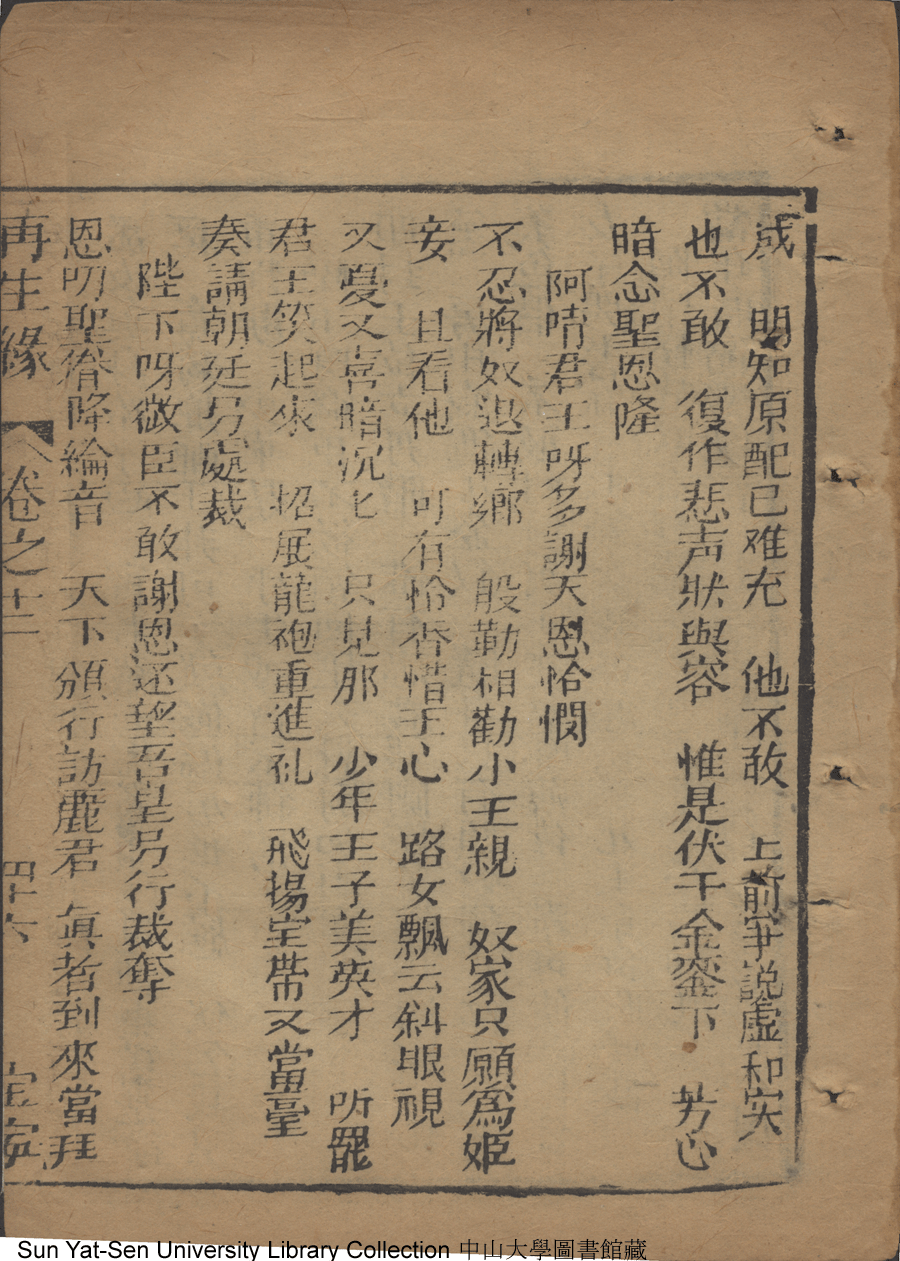 咸 明知原配已难充 他不敢 上前爭説虛和实
也不敢 復作悲声狀與容 惟是伏于金鑾下 芳心
暗念聖恩隆
阿唷君王呀多謝天恩恰憫
不忍將奴退轉鄉 般勤相勸小王親 奴家只願爲姬
妾 且看他 可有恰香惜玉心 路女飄云斜眼視
又憂又喜暗沉匕 只見那 少年王子美英才 听罷
君王笑起來 招展龍袍重進礼 飛揚宝帶又當臺
奏請朝廷另處裁
陛下呀微臣不敢謝恩还望吾皇另行裁奪
恩叨聖眷降綸音 天下頒行訪麗君 眞者到來當拜
再生緣 卷之十二 四十六
Sun Yat-Sen University Library Collection 中山大學圖書館藏